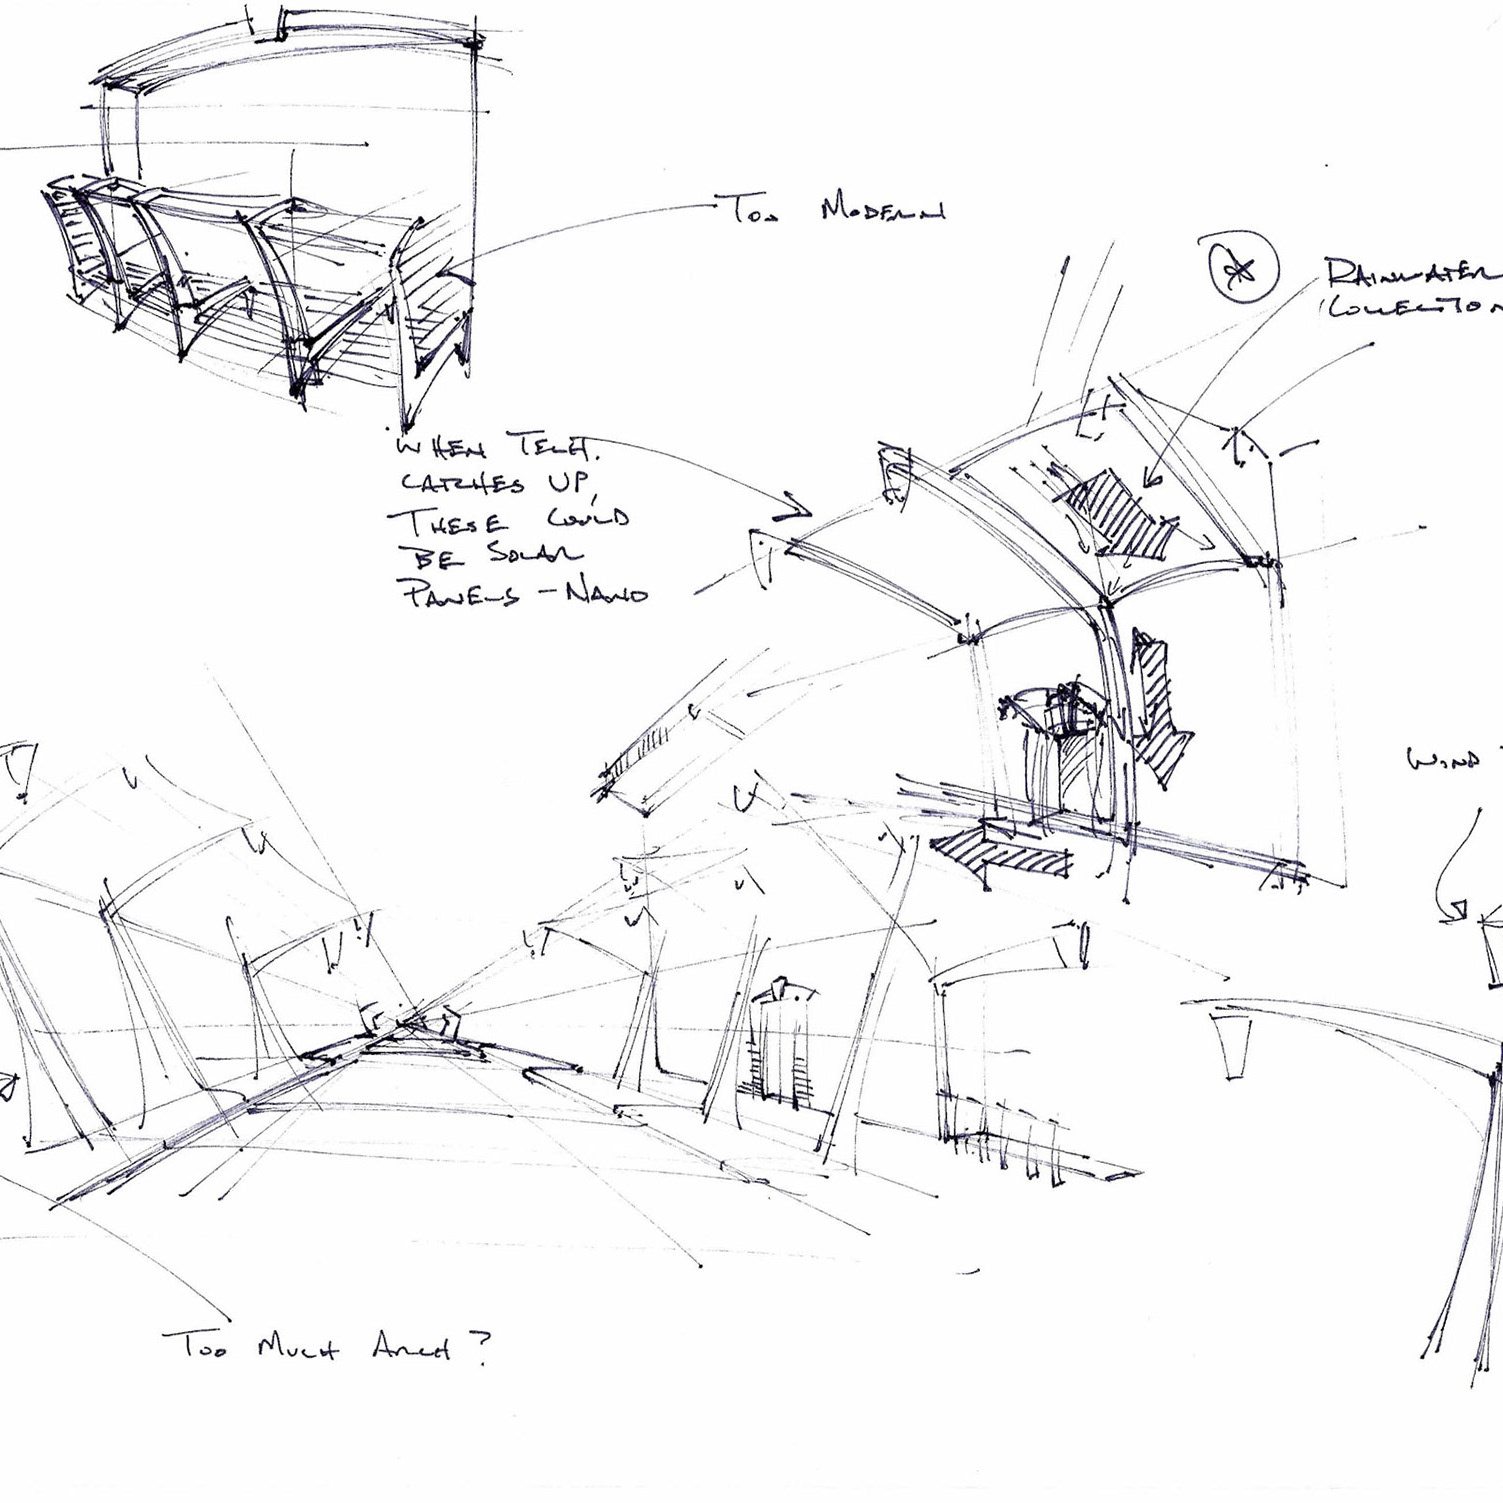 TOO MODERN
RAINWATER
COLLECTION
WHEN TECH.
CATCHES UP,
THESE COULD
BE SOLAR
PANELS - NANO
WIND
TOO MUCH ARCH?